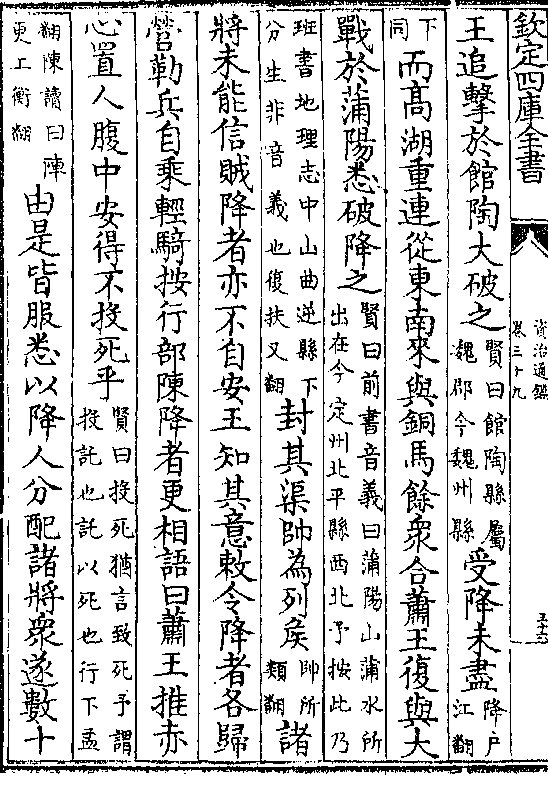 欽定四庫全書
資治通鑑
卷三十九
王追擊於館陶大破之賢曰館陶縣屬魏郡今魏州縣受降未盡降戶江翻
下同而髙湖重連從東南來與銅馬餘衆合蕭王復與大
戰於蒲陽悉破降之賢曰前書音義曰蒲陽山蒲水所出在今定州北平縣西北予按此乃
班書地理志中山曲逆縣下分生非音義也復扶又翻封其渠帥為列矦帥所類翻諸
將未能信賊降者亦不自安王知其意敕令降者各歸
營勒兵自乘輕騎按行部陳降者更相語曰蕭王推赤
心置人腹中安得不投死乎賢曰投死猶言致死予謂投託也託以死也行下孟
翻陳讀曰陣更工衡翻由是皆服悉以降人分配諸將衆遂數十